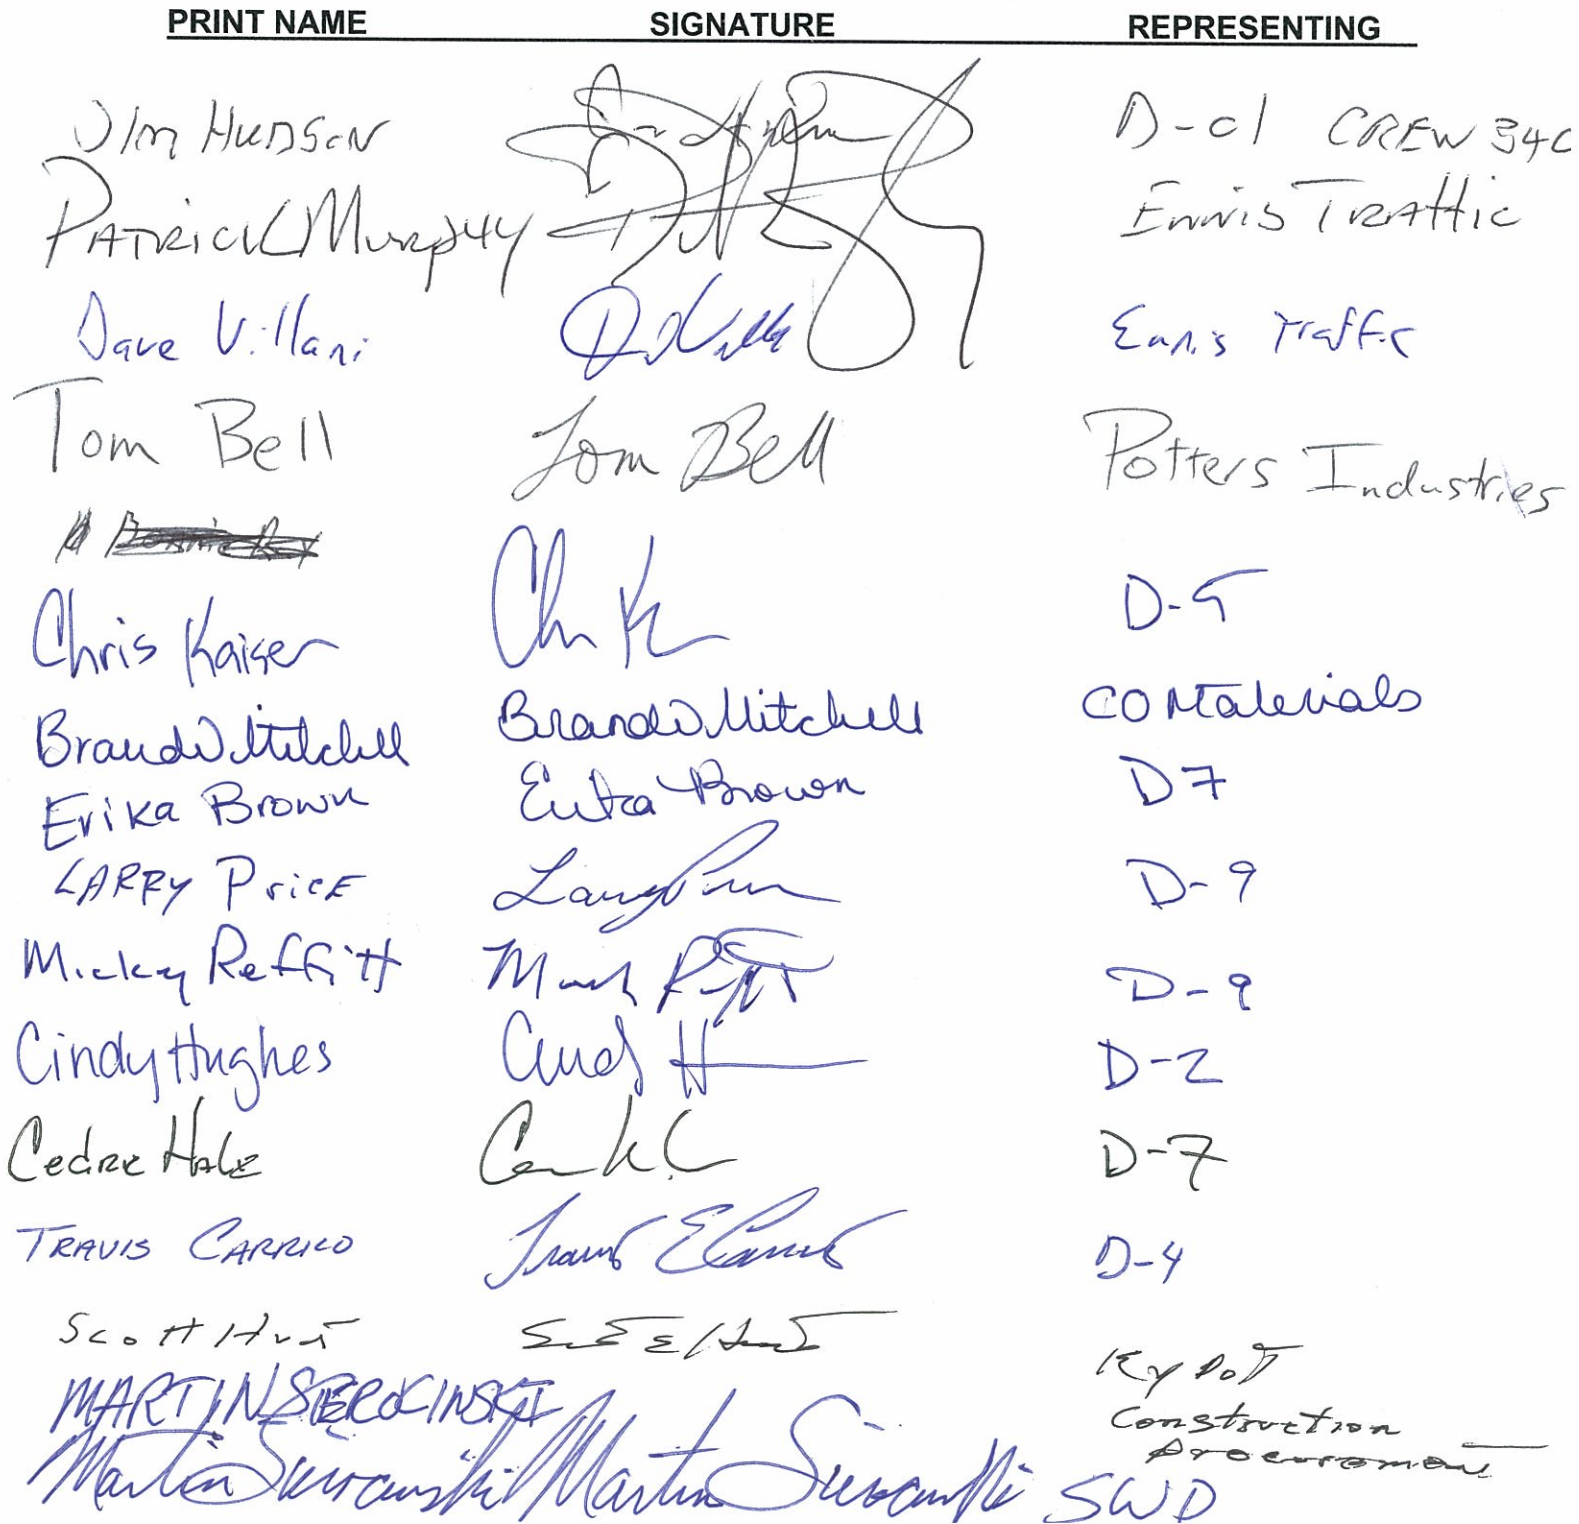 PRINT NAME SIGNATURE REPRESENTING
Jim Hudson D-01 CREW 34C
PATRICK Murphy Ennis Traffic
Dave Villani Ennis Traffic
Tom Bell Tom Bell Potters Industries
Chris Kaiser D-9
Brandi Mitchell Brandi Mitchell CO Materials
Erika Brown Erika Brown D7
LARRY PricE D-9
Micky Reffitt D-9
Cindy Hughes D-2
D-7
TRAVIS CARRICO D-4
Scott KyDOT
Construction
Procurement
MARTIN
Martin Martin SWD